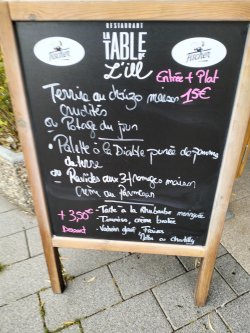 RESTAURANT
LA TABLE DE
L'ill
Fischer
Fischer
Entrée + Plat
Terrine au chorizo maison 15€
crudités
ou Potage du jour
• Palette à la Diable purée de pomme
de terre
ou Raviolis aux 3 fromages maison
Crème au Parmesan
+ 3,50€
Dessert
- Tarte à la Rhubarbe meringuée
- Tiramisu, crème brûlée
- Vacherin glacé, Fraises
Melba ou chantilly